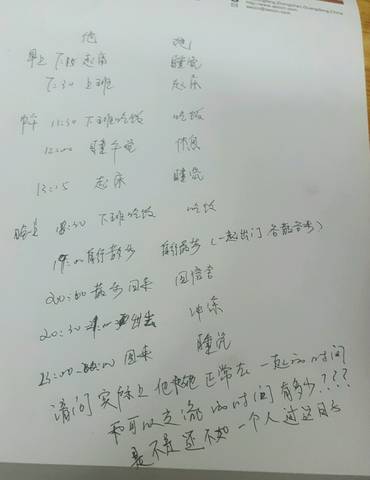 Zhongshan, Guangdong, China
他 她
早上 7:15 起床 睡觉
7:30 上班 起床
中午 11:30 下班吃饭 吃饭
12:00 睡午觉 休息
13:15 起床 睡觉
晚上 18:30 下班吃饭 吃饭
19:00 自行散步 自行散步(一起出门 各散各步)
20:00 散步回来 回宿舍
20:30 出去 冲凉
23:00 回来 睡觉
请问 实际上他和她 正常在一起的时间
和可以交流的时间有多少????
是不是还不如一个人过这日子